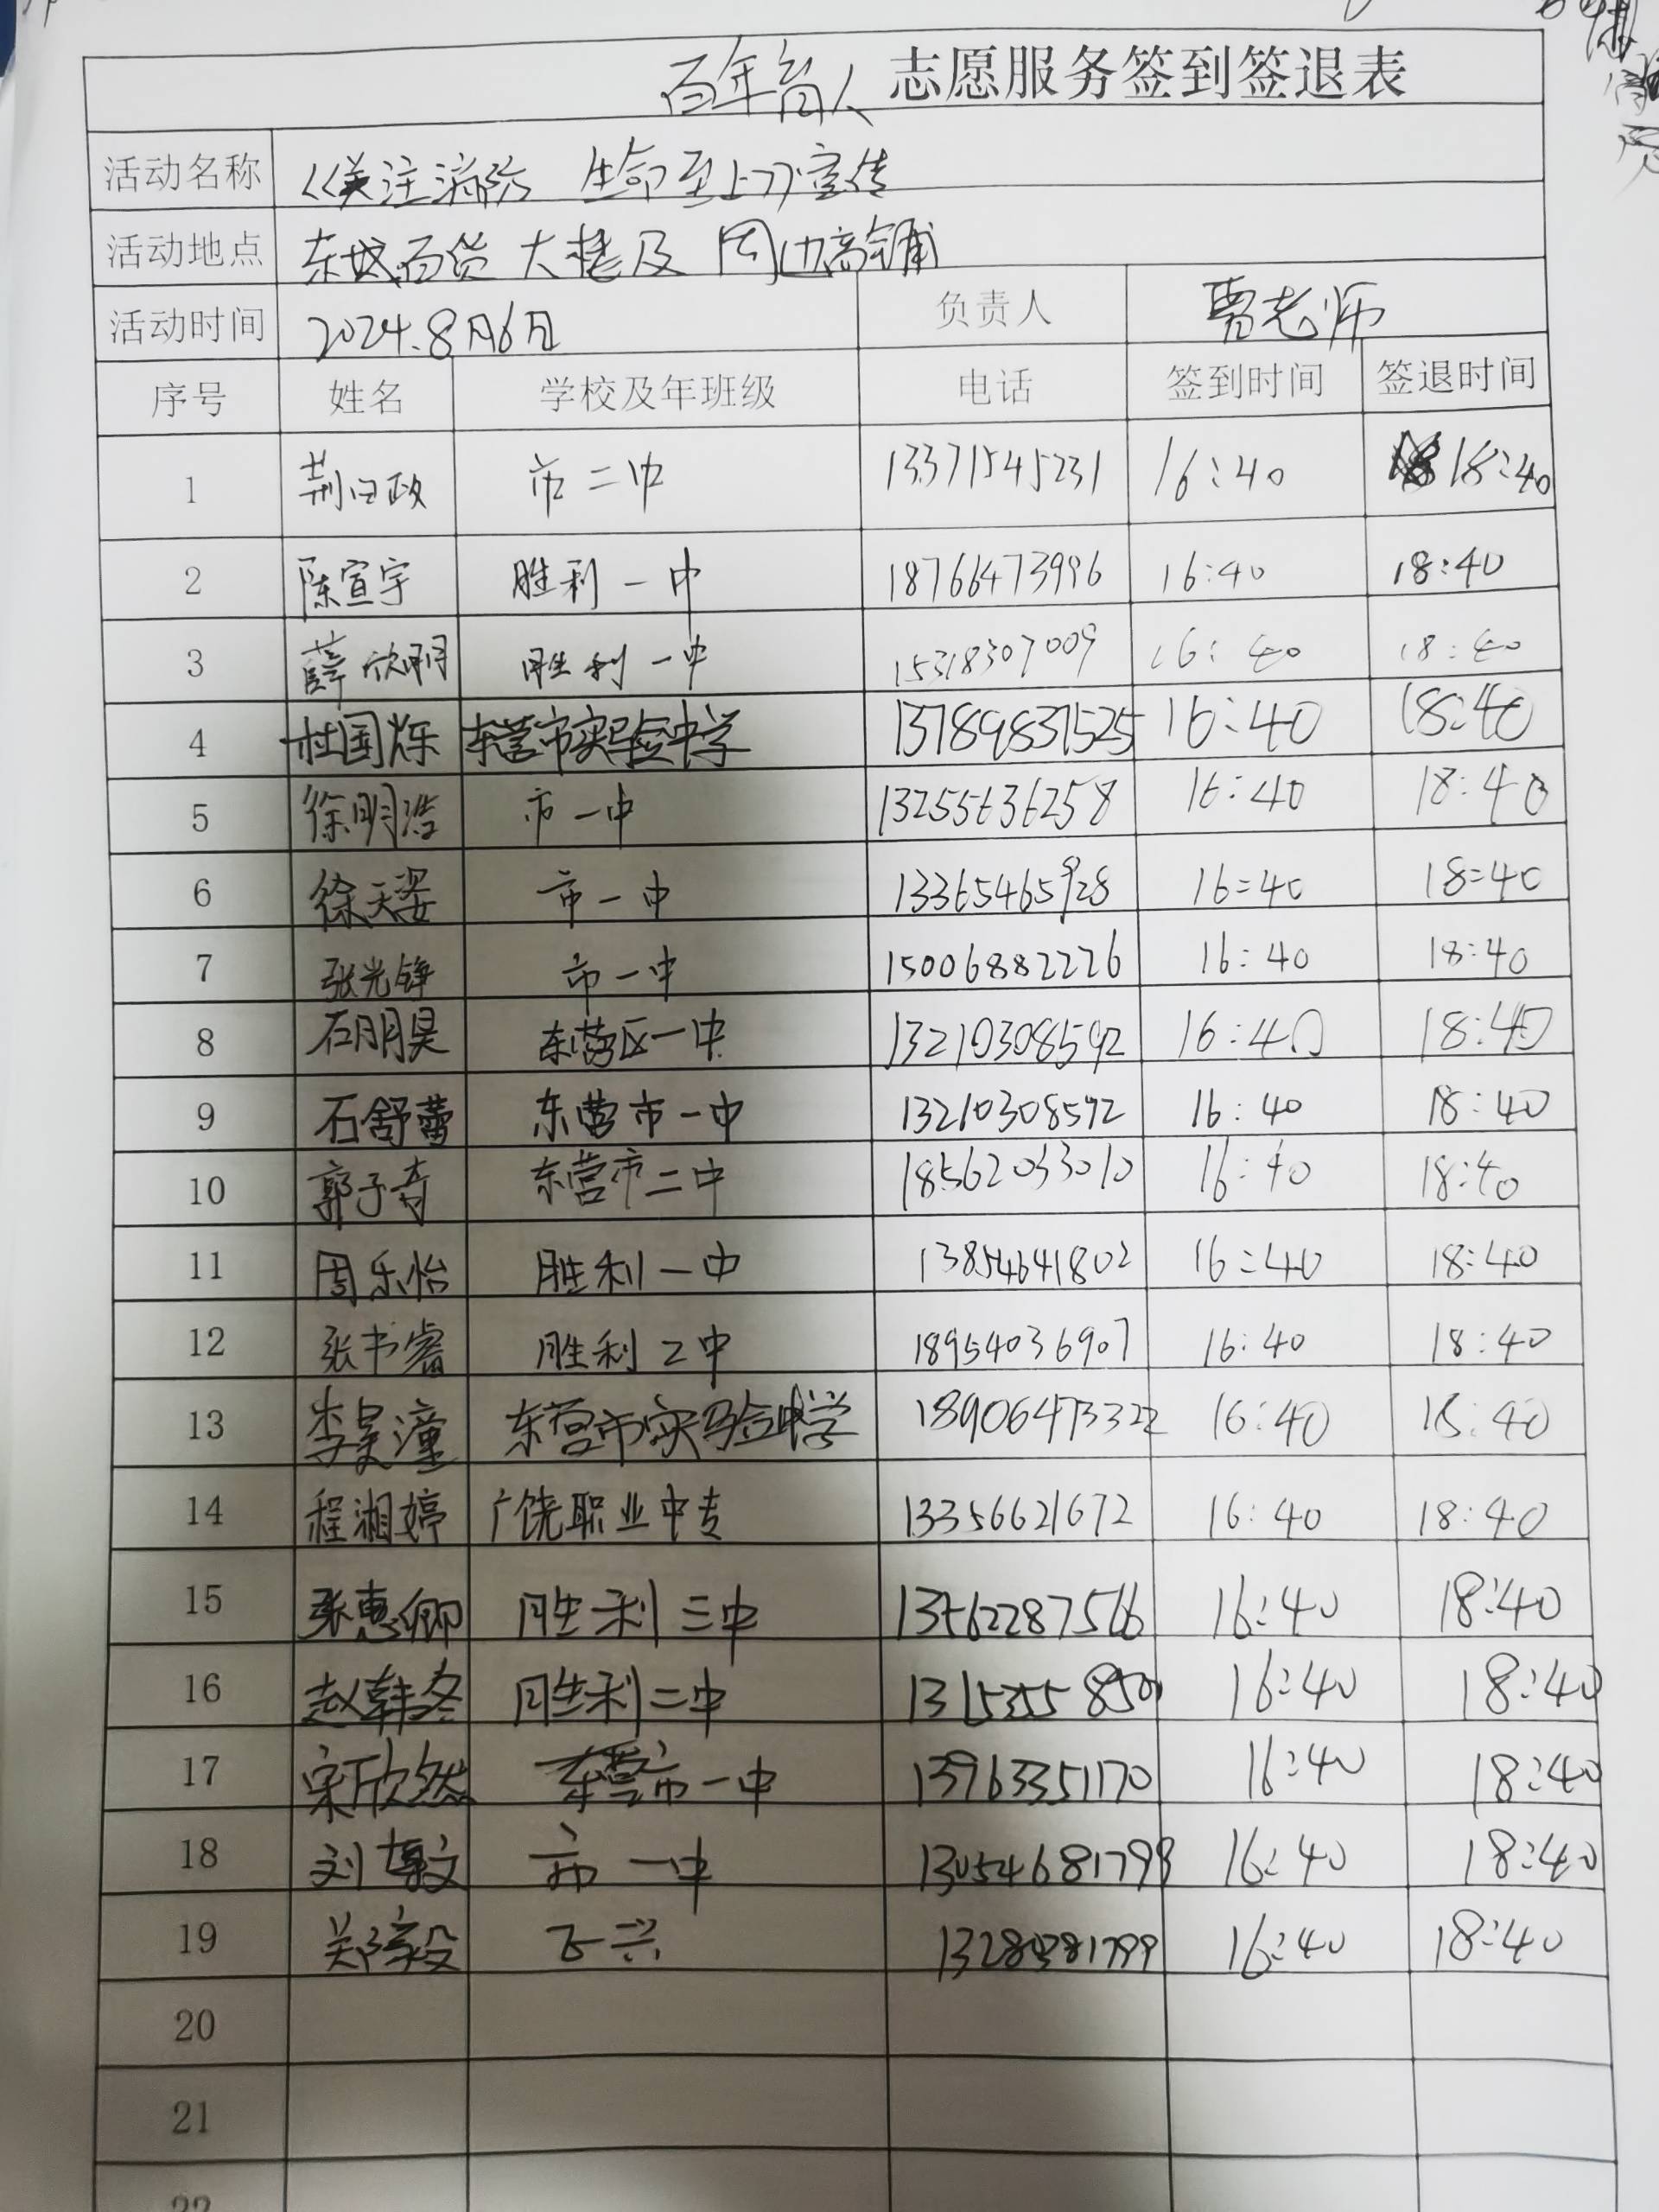 百年育人 志愿服务签到签退表
活动名称 《关注消防 生命至上》宣传
活动地点 东城百货大楼及周边商铺
活动时间 2024.8月6日 负责人 曹老师
序号 姓名 学校及年班级 电话 签到时间 签退时间
1 市二中 13371545231 16:40 18:40
2 陈宣宇 胜利一中 18766473996 16:40 18:40
3 薛欣明 胜利一中 15318307009 16:40 18:40
4 杜国烁 东营市实验中学 13789837525 16:40 18:40
5 徐明浩 市一中 13255636258 16:40 18:40
6 徐天姿 市一中 13365465928 16=40 18=40
7 张光铮 市一中 15006882226 16:40 18:40
8 石明昊 东营区一中 13210308592 16:40 18:40
9 石舒蕾 东营市一中 13210308592 16:40 18:40
10 郭子奇 东营市二中 18562033010 16:40 18:40
11 周乐怡 胜利一中 13854641802 16:40 18:40
12 张书睿 胜利2中 18954036907 16:40 18:40
13 李昊潼 东营市实验中学 18906473322 16:40 18:40
14 程湘婷 广饶职业中专 13356621672 16:40 18:40
15 张惠卿 胜利三中 16:40 18:40
16 赵韩冬 胜利二中 16:40 18:40
17 宋欣然 东营市一中 13963351170 16:40 18:40
18 市一中 13054681799 16:40 18:40
19 16:40 18:40
20
21
22